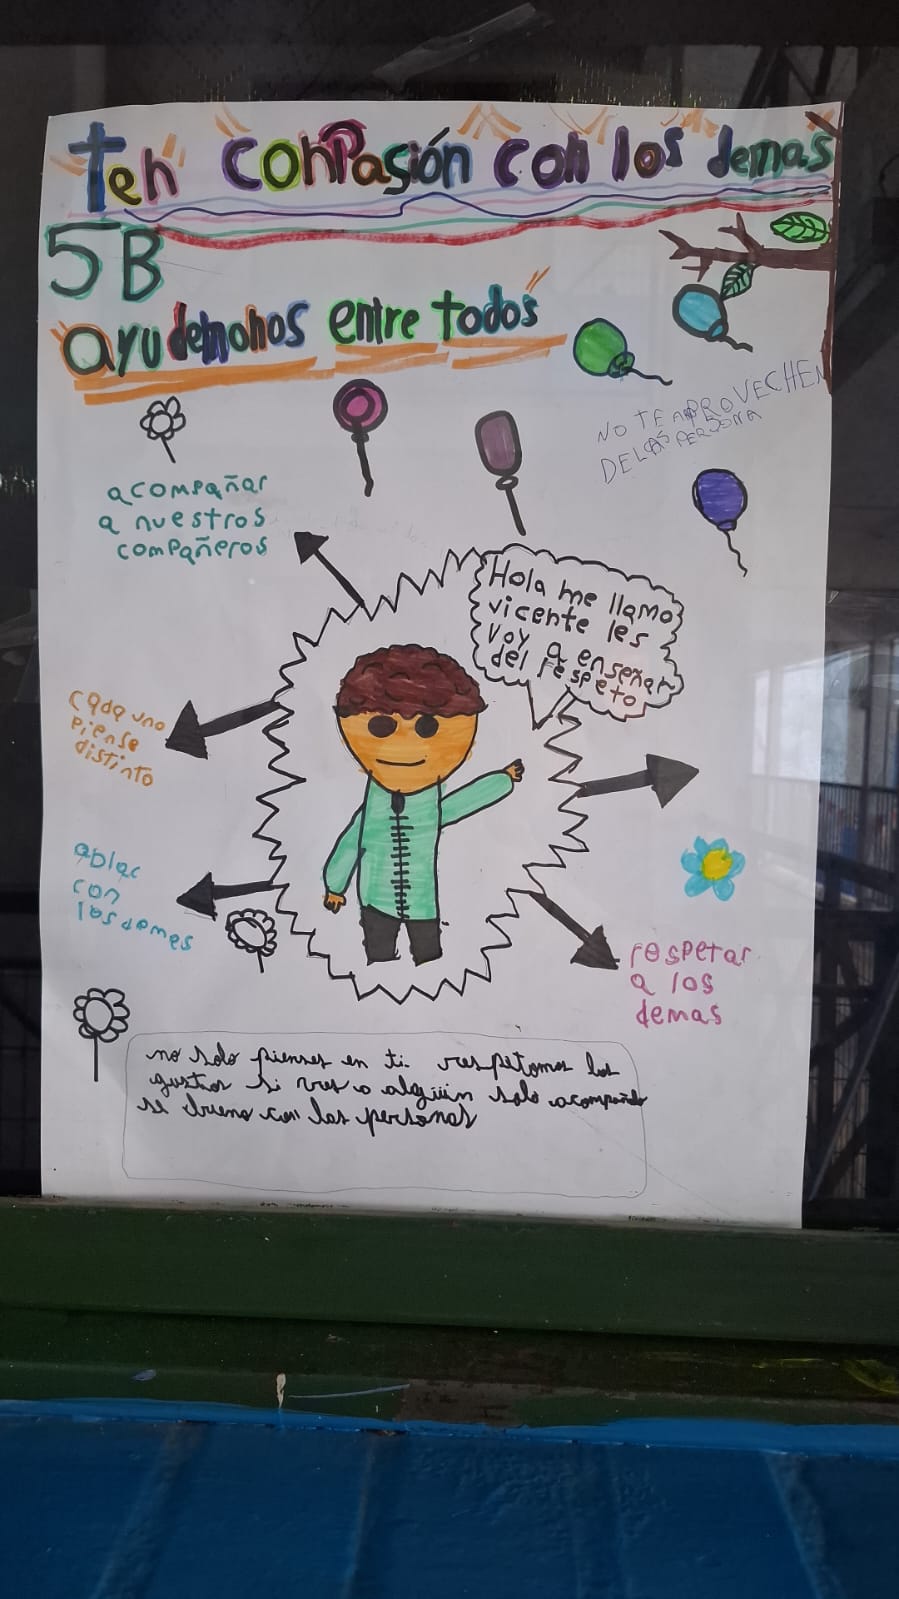 ten conPasión con los demas
5B
ayudemonos entre todos
NO TE APROVECHEN
DE LAS PERSONA
acompañar
a nuestros
compañeros
Hola me llamo
vicente les
voy a enseñar
del respeto
cada uno
piense
distinto
ablar
con
los demes
respetar
a los
demas
no solo pienses en ti respetamos los
gustos si ves a algúin solo acompañalo
se bueno con las personas